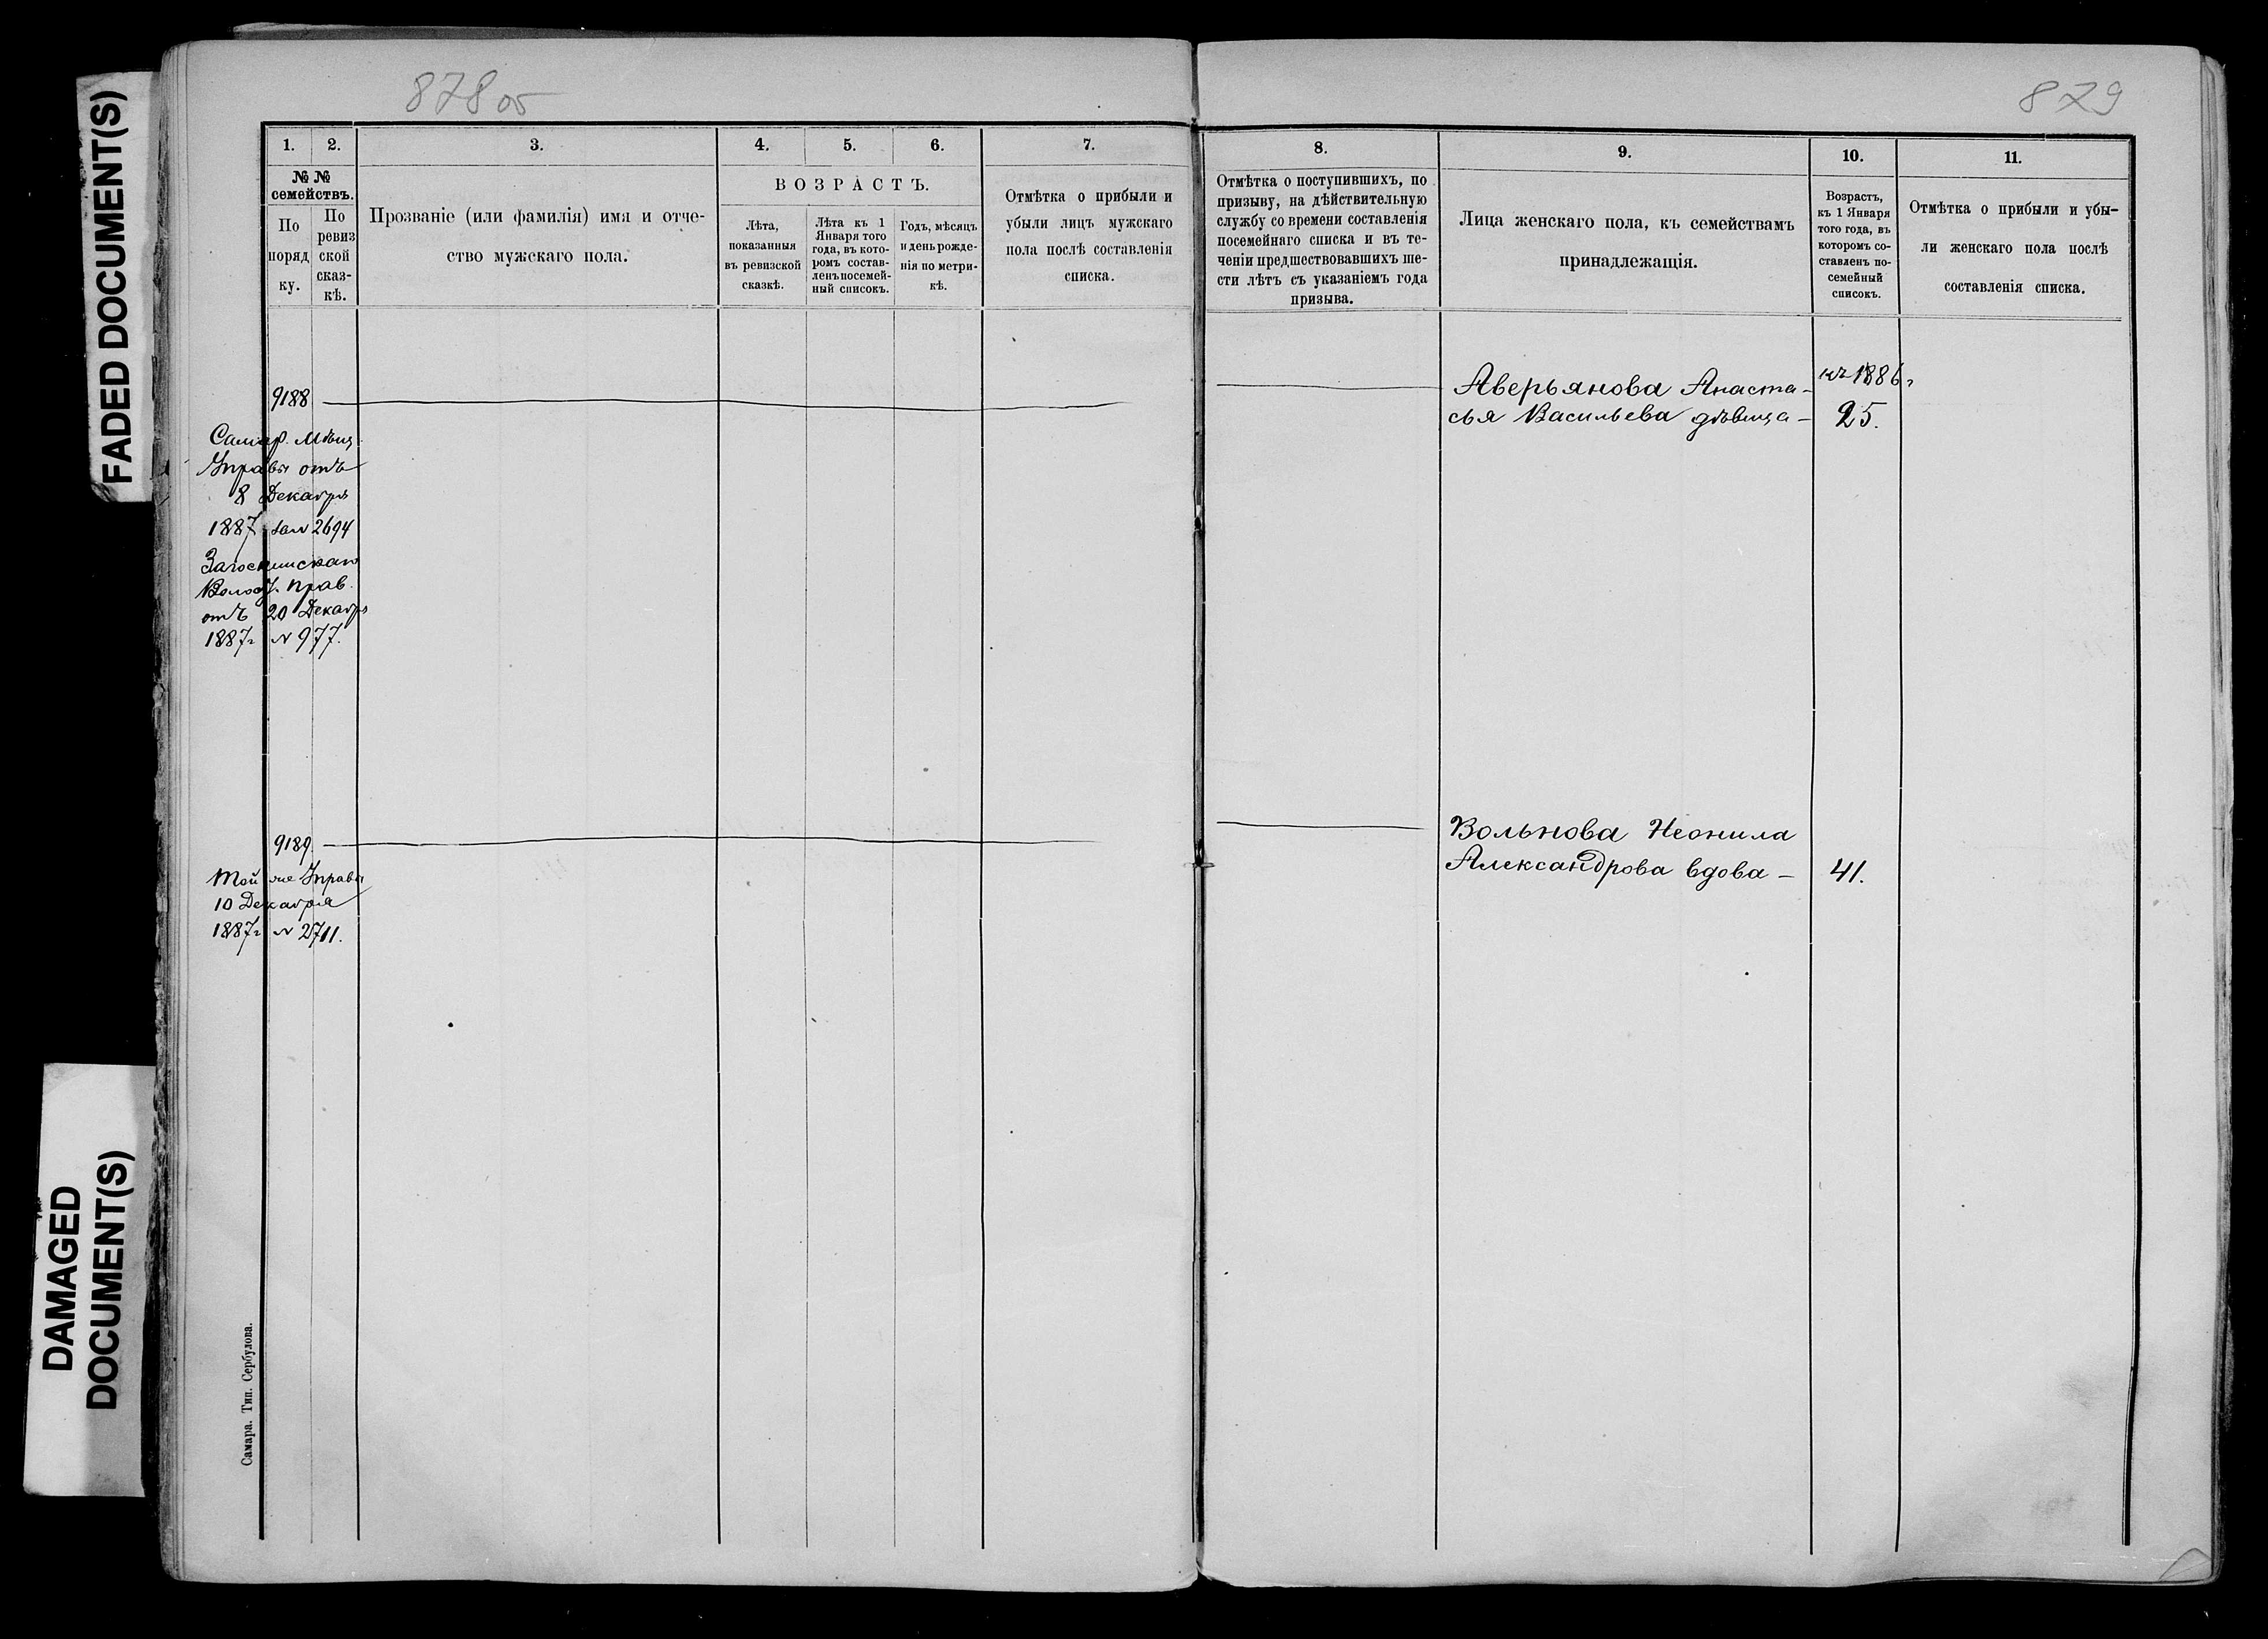 FADED DOCUMENT(S)
DAMAGED
DOCUMENT(S)
878 об
1.
2.
3.
4.
5.
6.
7.
№ №
семействъ.
По
поряд
ку.
По
ревиз
ской
сказ-
кѣ.
Прозваніе (или фамилія) имя и отче-
ство мужскаго пола.
ВОЗРАСТЪ.
Лѣта,
показанныя
въ ревизской
сказкѣ.
Лѣта къ 1
Января того
года, въ кото-
ромъ состав-
ленъ посемей-
ный списокъ.
Годъ, мѣсяцъ
и день рожде-
нія по метри-
кѣ.
Отмѣтка о прибыли и
убыли лицъ мужскаго
пола послѣ составленія
списка.
9188
Самар. Мѣщ.
Управы отъ
8 Декабря
1887 за № 2694
Волост. Прав.
отъ 20 Декабря
1887г № 977.
9189.
Той же Управы
10 Декабря
1887г № 2711.
Самара. Тип. Сербулова.
879
8.
9.
10.
11.
Отмѣтка о поступившихъ, по
призыву, на дѣйствительную
службу со времени составленія
посемейнаго списка и въ те-
ченіи предшествовавшихъ ше-
сти лѣтъ съ указаніемъ года
призыва.
Лица женскаго пола, къ семействамъ
принадлежащія.
Возрастъ,
къ 1 Января
того года, въ
которомъ со-
ставленъ по-
семейный
списокъ.
Отмѣтка о прибыли и убы-
ли женскаго пола послѣ
составленія списка.
Аверьянова Анаста-
сья Васильева дѣвица-
къ 1886г
25.
Вольнова Неонила
Александрова вдова -
41.